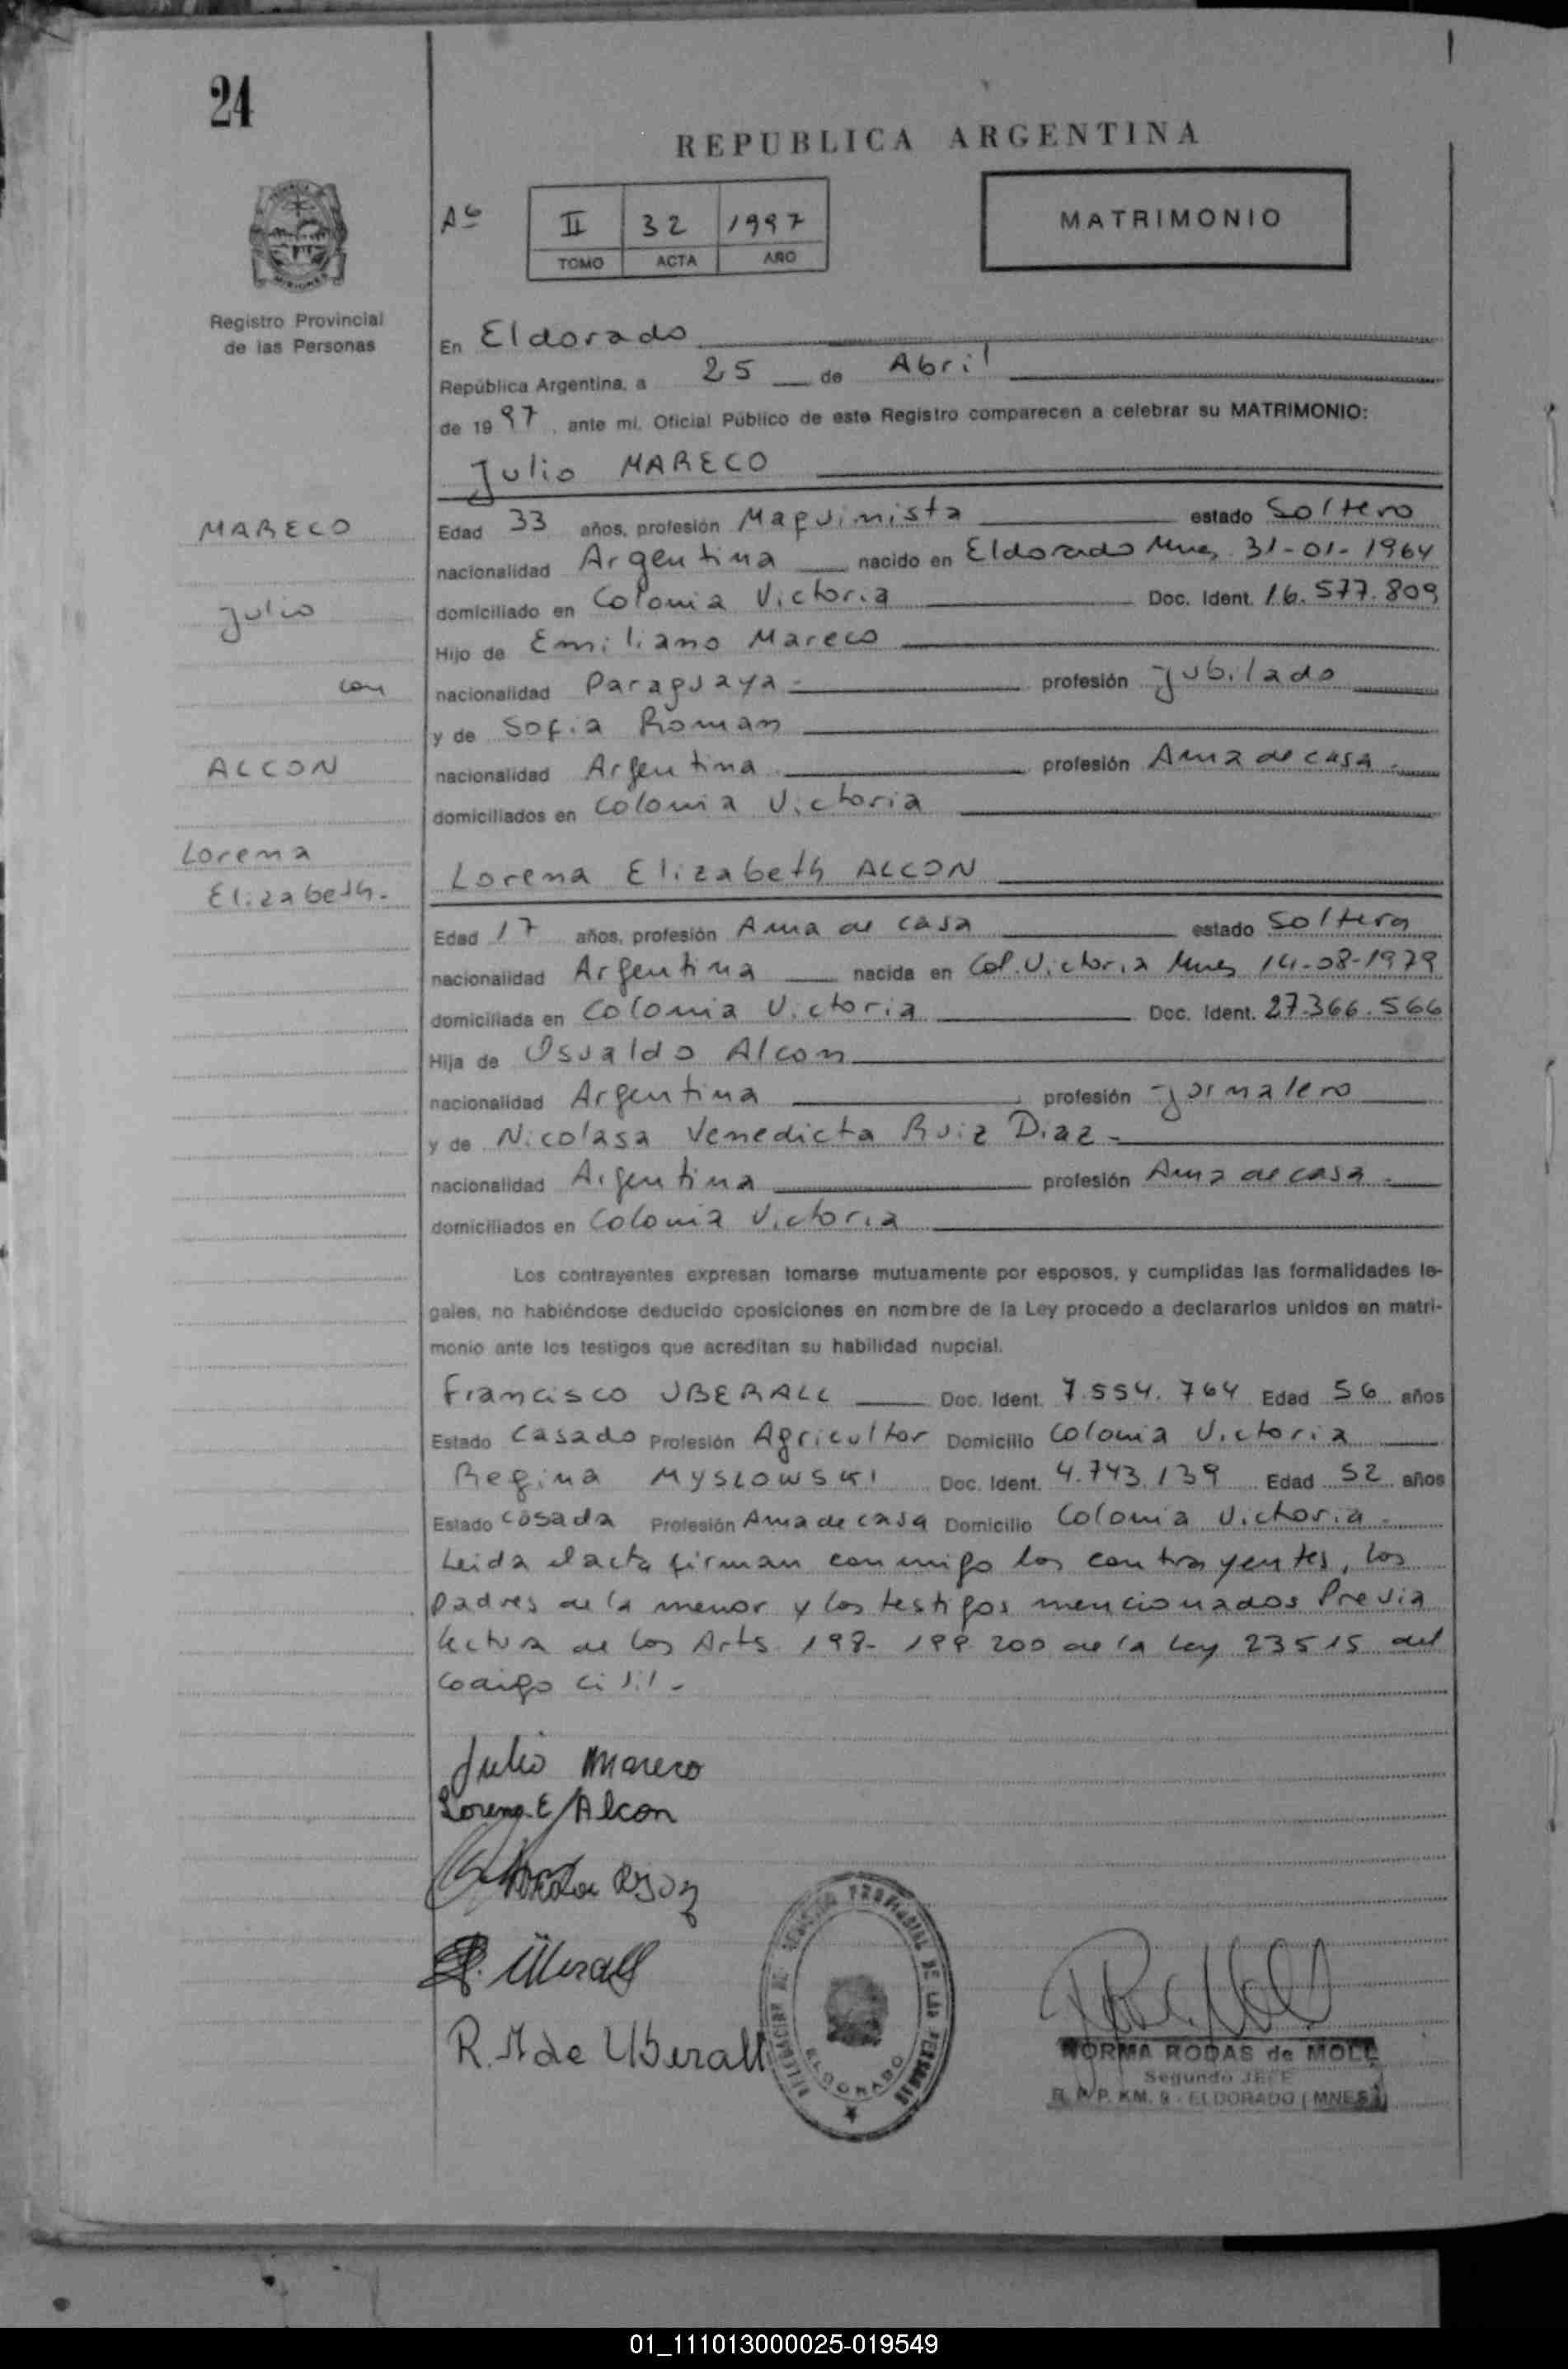 24
REPUBLICA ARGENTINA
II 32 1997
TOMO ACTA AÑO
MATRIMONIO
Registro Provincial
de las Personas
En Eldorado
República Argentina, a 25 de Abril
de 1997, ante mi, Oficial Público de este Registro comparecen a celebrar su MATRIMONIO:
Julio MARECO
MARECO
Julio
con
ALCON
Lorena
Elizabeth.-
Edad 33 años, profesión Maquinista estado Soltero
nacionalidad Argentina nacido en Eldorado Mnes 31-01-1964
domiciliado en Colonia Victoria Doc. Ident. 16.577.809
Hijo de Emiliano Mareco
nacionalidad Paraguaya- profesión Jubilado
y de Sofia Roman
nacionalidad Argentina profesión Ama de casa.-
domiciliados en Colonia Victoria
Lorena Elizabeth ALCON
Edad 17 años, profesión Ama de casa estado Soltera
nacionalidad Argentina nacida en Col. Victoria Mnes 14-08-1979
domiciliada en Colonia Victoria Doc. Ident. 27.366.566
Hija de Osvaldo Alcon
nacionalidad Argentina profesión Jornalero
y de Nicolasa Venedicta Ruiz Diaz-
nacionalidad Argentina profesión Ama de casa.-
domiciliados en Colonia Victoria
Los contrayentes expresan tomarse mutuamente por esposos, y cumplidas las formalidades le-
gales, no habiéndose deducido oposiciones en nombre de la Ley procedo a declararlos unidos en matri-
monio ante los testigos que acreditan su habilidad nupcial.
Francisco UBERALL Doc. Ident. 7.554.764 Edad 56 años
Estado Casado Profesión Agricultor Domicilio Colonia Victoria
Regina MYSLOWSKI Doc. Ident. 4.743.139 Edad 52 años
Estado Casada Profesión Ama de casa Domicilio Colonia Victoria-
Leida el acta firman conmigo los contrayentes, los
padres de la menor y los testigos mencionados Previa
lectura de los Arts. 198- 199 200 de la Ley 23515 del
Codigo Civil-
Julio Mareco
Lorena E Alcon
Uberall
R. M de Uberall
DELEGACION DE REGISTRO PROVINCIAL DE LAS PERSONAS
ELDORADO
NORMA RODAS de MOLL
Segundo JEFE
R. P. P. KM. 9 - ELDORADO (MNES.)
01_111013000025-019549